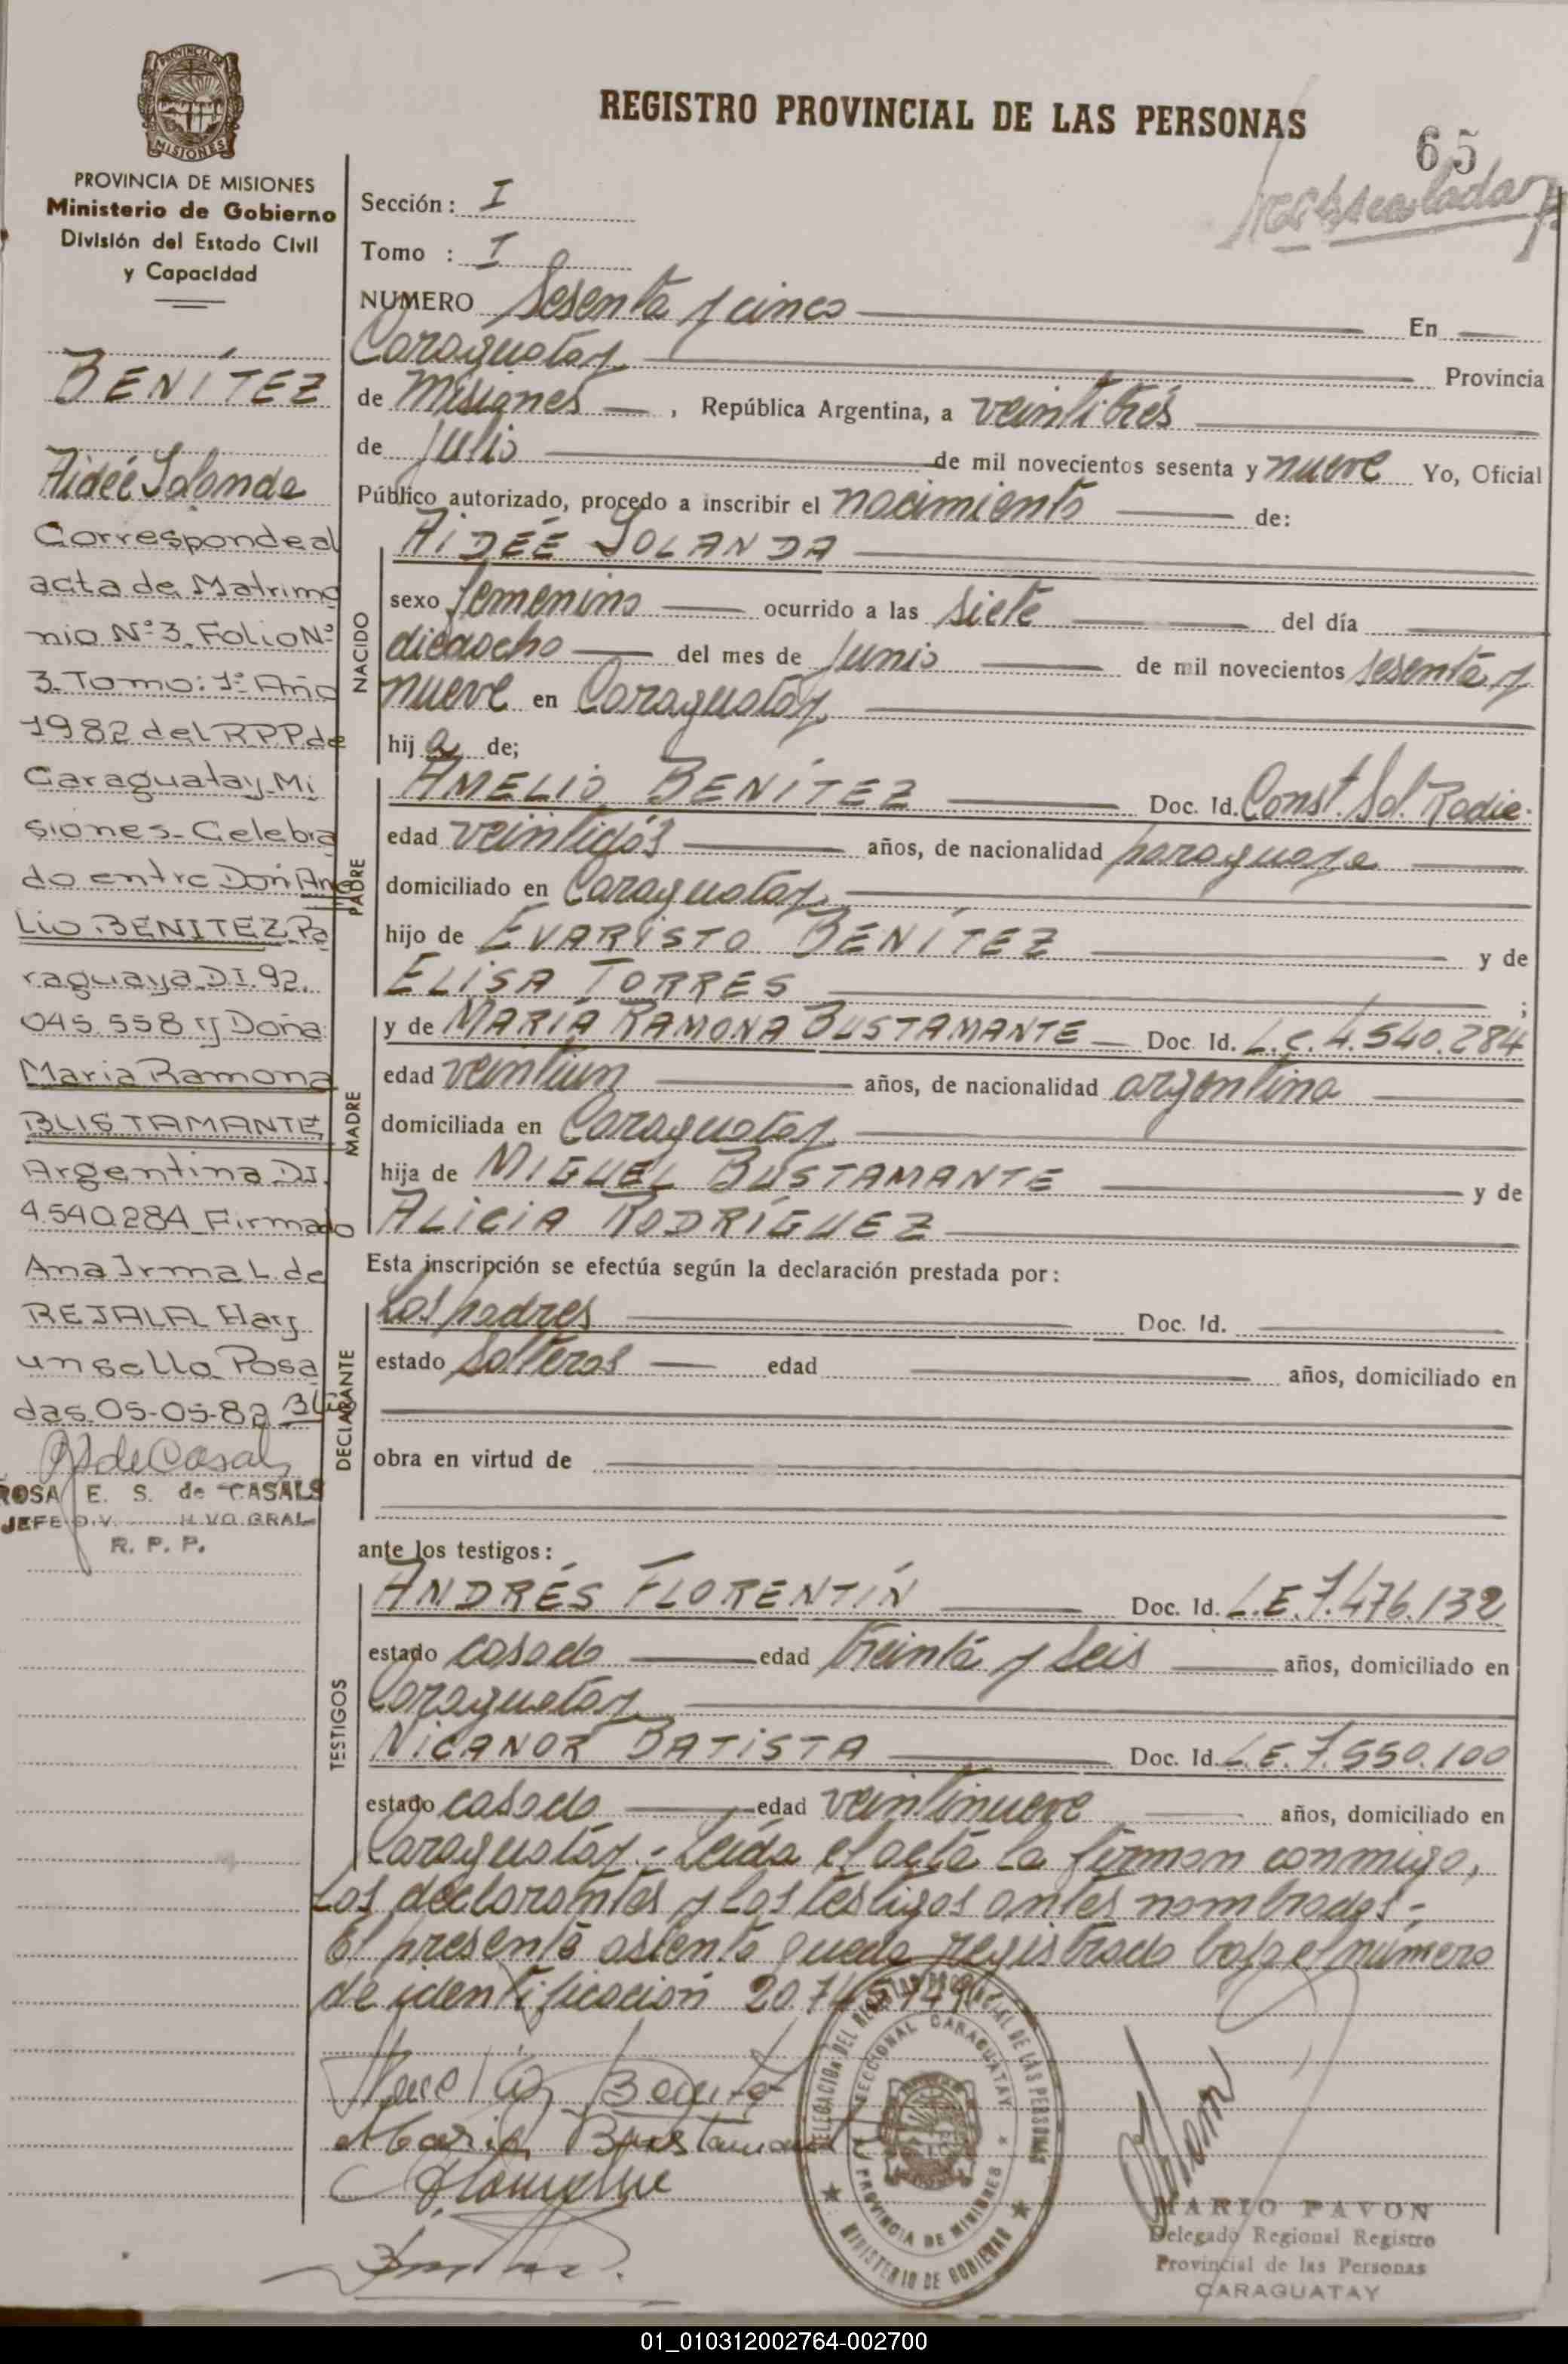 REGISTRO PROVINCIAL DE LAS PERSONAS
65
PROVINCIA DE
MISIONES
PROVINCIA DE MISIONES
Ministerio de Gobierno
División del Estado Civil
y Capacidad
BENÍTEZ
Aidéé Iolanda
Corresponde al
acta de Matrimo
nio Nº 3 Folio Nº
3 Tomo: 1º Año
1982 del RPP de
Caraguatay Mi
siones - Celebra
do entre Don Ame
Lio BENITEZ Pa
raguaya D.I. 92.
045.558 y Doña
Maria Ramona
BUSTAMANTE
Argentina DI.
4.540284 Firmado
Ana Irma L. de
REJALA Hay
un sello Posa
das 05-05-82
ROSA E. S. de CASALS
R. P. P.
Sección: I
Tomo : I
NUMERO Sesenta y cinco En
Caraguatay Provincia
de Misiones, República Argentina, a veintitrés
de julio de mil novecientos sesenta y nueve Yo, Oficial
Público autorizado, procedo a inscribir el nacimiento de:
NACIDO
AIDÉE IOLANDA
sexo femenino ocurrido a las siete del día
dieciocho del mes de junio de mil novecientos sesenta y
nueve en Caraguatay
hija de;
PADRE
AMELIO BENÍTEZ Doc. Id. Const. Sol. Radic.
edad veintidós años, de nacionalidad paraguaya
domiciliado en Caraguatay
hijo de EVARISTO BENÍTEZ y de
ELISA TORRES ;
MADRE
y de MARÍA RAMONA BUSTAMANTE Doc. Id. L.C. 4.540.284
edad veintiun años, de nacionalidad argentina
domiciliada en Caraguatay
hija de MIGUEL BUSTAMANTE y de
ALICIA RODRÍGUEZ
Esta inscripción se efectúa según la declaración prestada por:
DECLARANTE
Los padres Doc. Id.
estado solteros edad años, domiciliado en
obra en virtud de
ante los testigos:
TESTIGOS
ANDRÉS FLORENTÍN Doc. Id. L.E. 7.476.132
estado casado edad treinta y seis años, domiciliado en
Caraguatay
NICANOR BATISTA Doc. Id. L.E. 7.550.100
estado casado edad veintinueve años, domiciliado en
Caraguatáy.- Leída el acta la firman conmigo,
Los declarantes y los testigos antes nombrados.-
El presente asiento queda registrado bajo el número
de identificación
Maria Bustamante
DELEGACION DEL REGISTRO PROVINCIAL DE LAS PERSONAS
SECCIONAL CARAGUATAY
PROVINCIA DE MISIONES
MINISTERIO DE GOBIERNO
MARIO PAVON
Delegado Regional Registro
Provincial de las Personas
CARAGUATAY
01_010312002764-002700